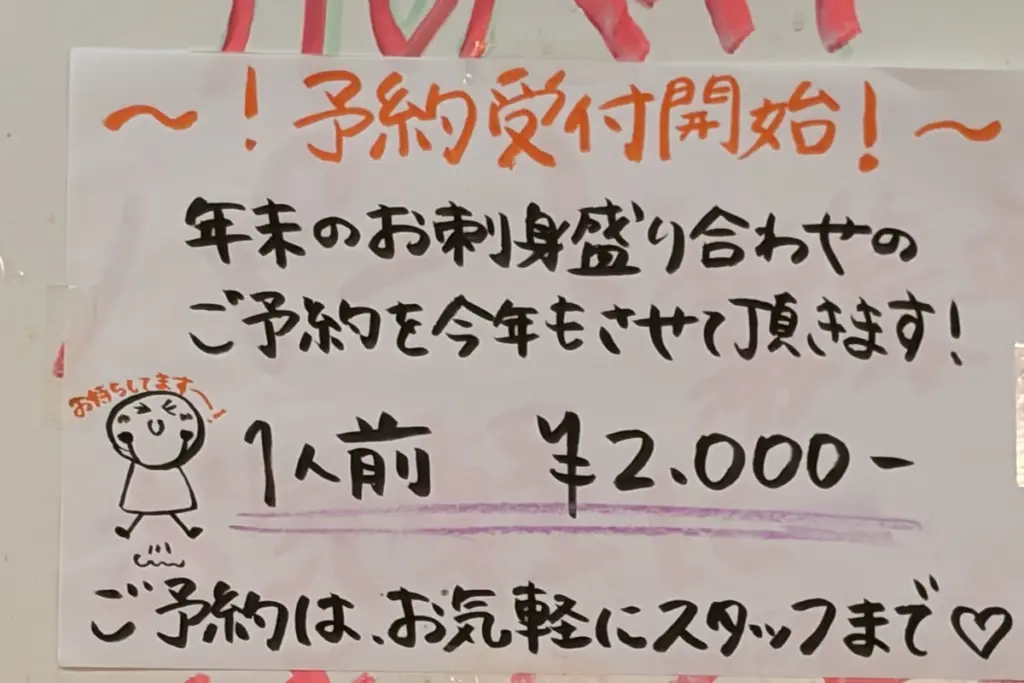 〜！予約受付開始！〜
年末のお刺身盛り合わせの
ご予約を今年もさせて頂きます！
お待ちしてます〜！
1人前 ¥2.000-
ご予約は、お気軽にスタッフまで♡